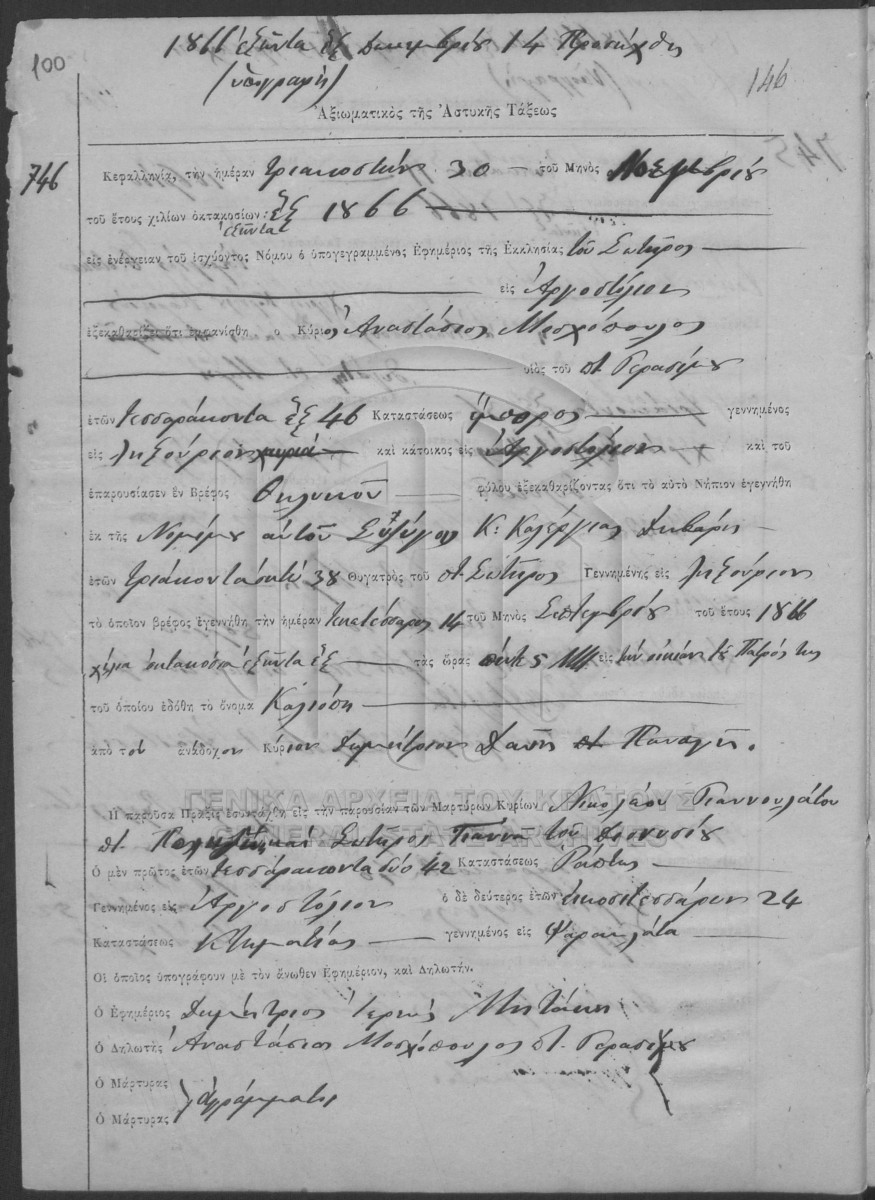 100
1866 ἑξῆντα ἕξ Δεκεμβρίου 14 Προσήχθη
146
(ὑπογραφή)
Ἀξιωματικὸς τῆς Ἀστυκῆς Τάξεως
746
Κεφαλληνία, τὴν ἡμέραν τριακοστήν 30 τοῦ Μηνὸς Νοεμβρίου
τοῦ ἔτους χιλίων ὀκτακοσίων ἑξῆντα ἕξ 1866
εἰς ἐνέργειαν τοῦ ἰσχύοντος Νόμου ὁ ὑπογεγραμμένος Ἐφημέριος τῆς Ἐκκλησίας τοῦ Σωτῆρος
εἰς Ἀργοστόλιον
ἐξεκαθαρίζει ὅτι ἐμφανίσθη ὁ Κύριος Ἀναστάσιος Μοσχόπουλος
υἱὸς τοῦ ποτ Γερασίμου
ἐτῶν τεσσαράκοντα ἕξ 46 Καταστάσεως ἔμπορος γεννημένος
εἰς Ληξούριον καὶ κάτοικος εἰς Ἀργοστόλιον καὶ τοῦ
ἐπαρουσίασεν ἓν Βρέφος Θηλυκοῦ φύλου ἐξεκαθαρίζοντας ὅτι τὸ αὐτὸ Νήπιον ἐγεννήθη
ἐκ τῆς Νομίμου αὐτοῦ Συζύγου Κ: Καλέργιας
ἐτῶν τριάκοντα ὀκτώ 38 Θυγατρὸς τοῦ ποτ Σωτῆρος Γεννημένης εἰς Ληξούριον
τὸ ὁποῖον βρέφος ἐγεννήθη τὴν ἡμέραν 14 τοῦ Μηνὸς Σεπτεμβρίου τοῦ ἔτους 1866
χίλια ὀκτακόσια ἑξῆντα ἕξ τὰς ὥρας πέντε 5 εἰς τὴν οἰκίαν τοῦ Πατρός της
τοῦ ὁποίου ἐδόθη τὸ ὄνομα Καλιόπη
ἀπὸ τοῦ ἀνάδοχον Κύριον Δημήτριον ποτ Παναγῆ.
ΓΕΝΙΚΑ ΑΡΧΕΙΑ ΤΟΥ ΚΡΑΤΟΥΣ
Η παροῦσα Πρᾶξις ἐσυντάχθη εἰς τὴν παρουσίαν τῶν Μαρτύρων Κυρίων Νικολάου Γιαννουλάτου
GENERAL STATE ARCHIVES
ποτ καὶ Σωτῆρος Γιάννα τοῦ Διονυσίου
Ὁ μὲν πρῶτος ἐτῶν τεσσαράκοντα δύο 42 Καταστάσεως Ράπτης
Γεννημένος εἰς Ἀργοστόλιον ὁ δὲ δεύτερος ἐτῶν εἰκοσιτεσσάρων 24
Καταστάσεως Κτηματίας γεννημένος εἰς Φαρακλάτα
Οἱ ὁποῖος ὑπογράφουν μὲ τὸν ἄνωθεν Ἐφημέριον, καὶ Δηλωτήν.
Ὁ Ἐφημέριος Δημήτριος Ἱερεὺς
Ὁ Δηλωτὴς Ἀναστάσιος Μοσχόπουλος ποτ. Γερασίμου
Ὁ Μάρτυρας
ἀγράμματοι
Ὁ Μάρτυρας